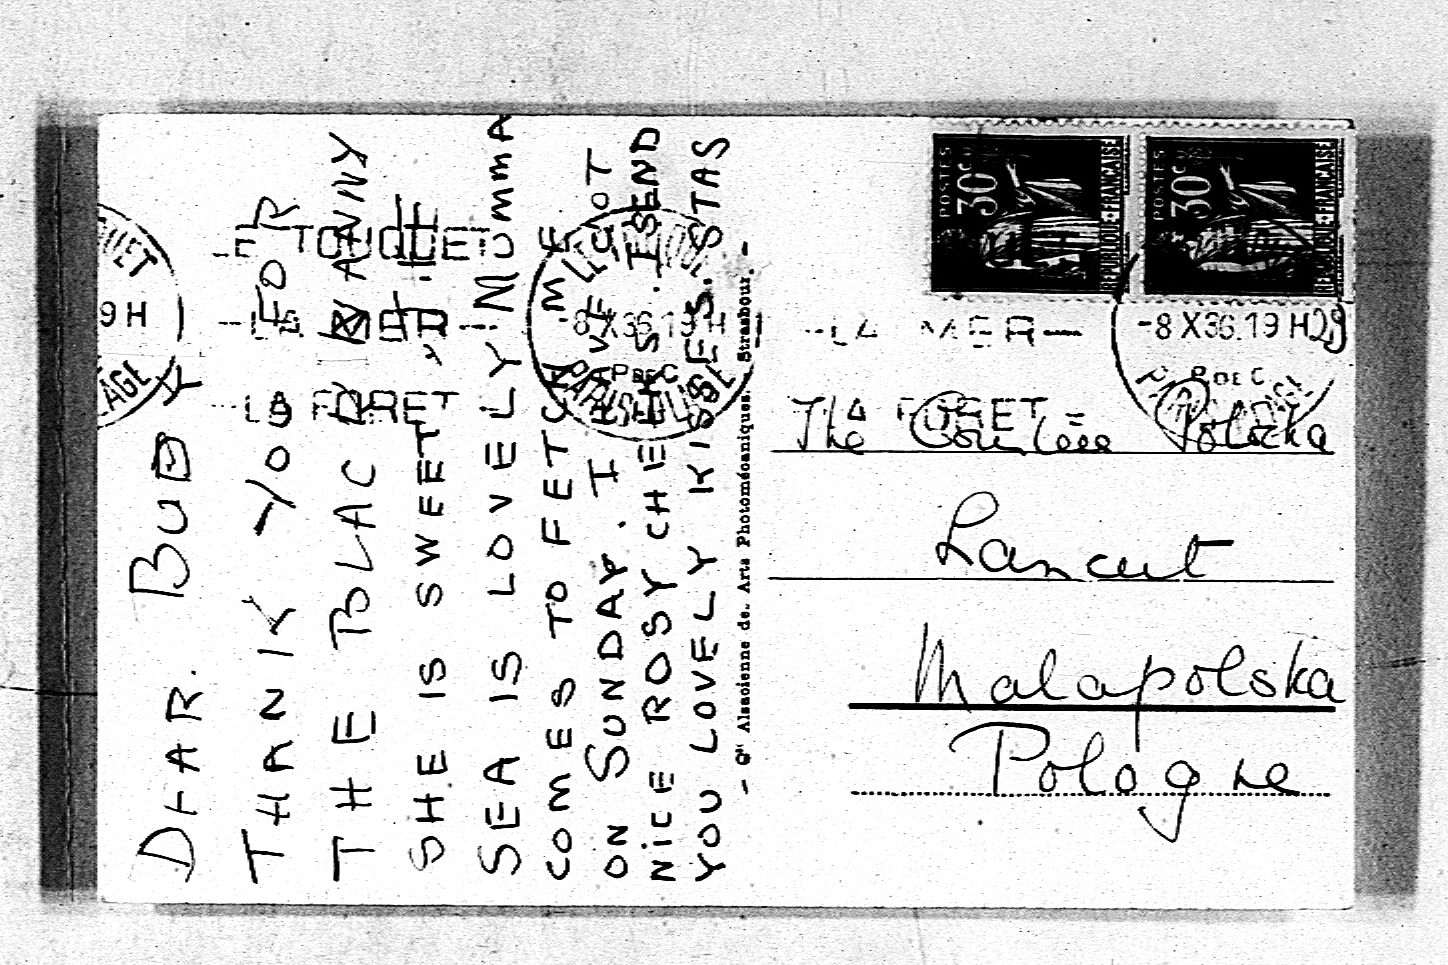 DEAR. BUDY
THANK YOU FOR
THE BLACK NANNY
SHE IS SWEET, THE
SEA IS LOVELY. MUMMA
COMES TO FETCH ME
ON SUNDAY. I HAVE GOT
NICE ROSY CHEEKS. I SEND
YOU LOVELY KISSES. STAS
Cie Alsacienne des Arts Photomécaniques, Strasbourg.
POSTES 30c REPUBLIQUE-FRANÇAISE
POSTES 30c REPUBLIQUE-FRANÇAISE
LE TOUQUET
-LA MER-
LA FORET
LE TOUQUET
-8 X36.19 H
P DE C
PARIS-PLAGE
-LA MER-
LA FORET-
-8 X36.19 H
P DE C
PARIS-PLAGE
QUET
9 H
LAGE
The Countess Potocka
Lancut
Malapolska
Pologne